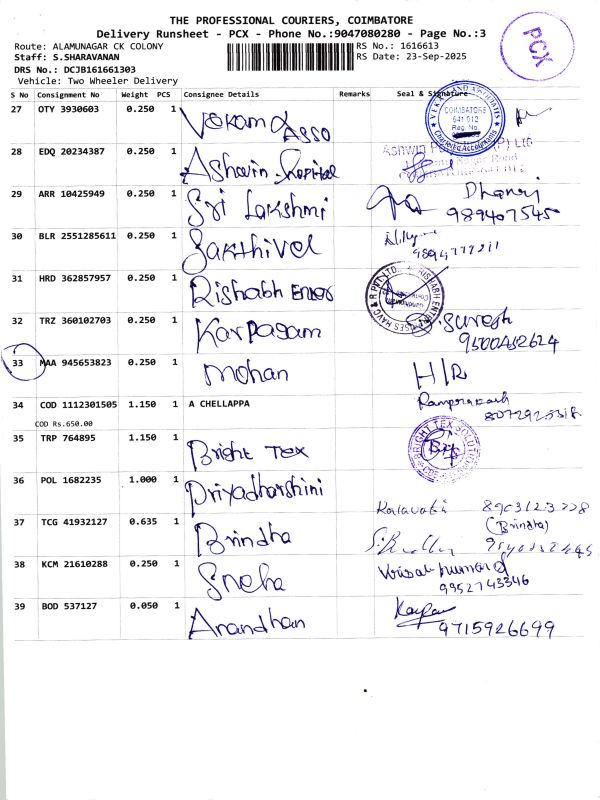 THE PROFESSIONAL COURIERS, COIMBATORE
Delivery Runsheet - PCX - Phone No.:9047080280 - Page No.:3
Route: ALAMUNAGAR CK COLONY
RS No.: 1616613
Staff: S.SHARAVANAN
RS Date: 23-Sep-2025
DRS No.: DCJB161661303
Vehicle: Two Wheeler Delivery
PCX
S No Consignment No Weight PCS Consignee Details Remarks Seal & Signature
27 OTY 3930603 0.250 1 Vekam Asso
COIMBATORE
641 012
Reg. No
Chartered Accountants
28 EDQ 20234387 0.250 1 Ashwin Hospital
29 ARR 10425949 0.250 1 Sri Lakshmi Dhanraj
989407545
30 BLR 2551285611 0.250 1 Sakthivel
31 HRD 362857957 0.250 1 Rishabh Enter
32 TRZ 360102703 0.250 1 Karpagam Suresh
9500452624
33 MAA 945653823 0.250 1 Mohan H/R
34 COD 1112301505 1.150 1 A CHELLAPPA Ramprakash
COD Rs.650.00
35 TRP 764895 1.150 1 Bright Tex
BRIGHT TEX SOLUTION
36 POL 1682235 1.000 1 Priyadharshini
Kalavathi
37 TCG 41932127 0.635 1 Brindha (Brindha)
38 KCM 21610288 0.250 1 Sneha
9952743346
39 BOD 537127 0.050 1 Anandhan
9715926699